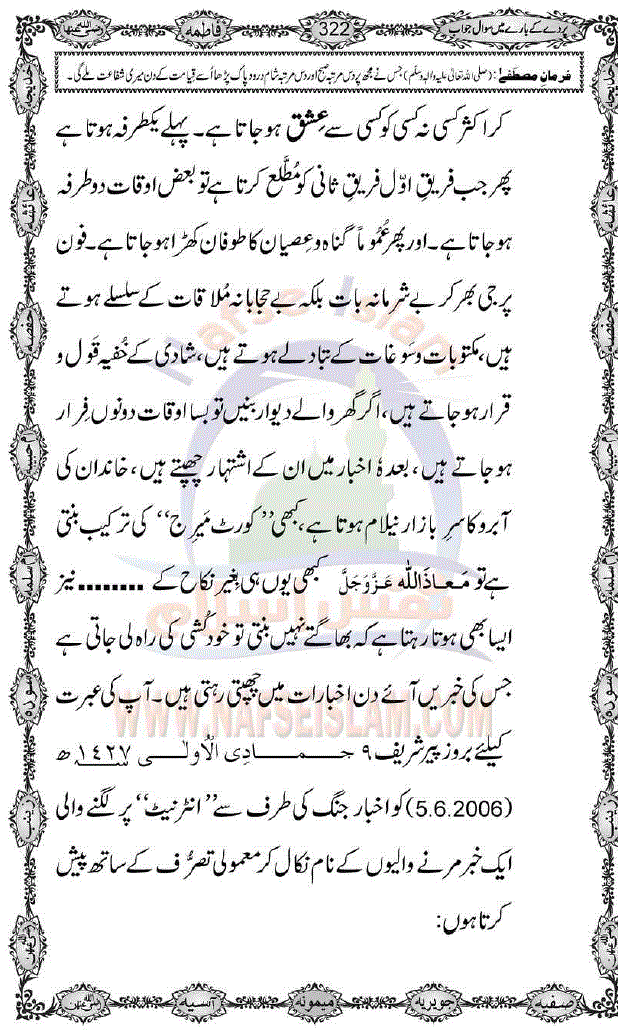 پردے کے بارے میں سوال جواب 322 فاطمه رضی اللہ عنہا
فرمانِ مصطفےٰ: (صلی اللہ تعالیٰ علیہ والہ وسلم) جس نے مجھ پر دس مرتبہ صبح اور دس مرتبہ شام درود پاک پڑھا اُسے قیامت کے دن میری شفاعت ملے گی۔
کر اکثر کسی نہ کسی کو کسی سے عِشق ہو جاتا ہے۔ پہلے یکطرفہ ہوتا ہے
پھر جب فریقِ اوّل فریقِ ثانی کو مُطَّلع کرتا ہے تو بعض اوقات دو طرفہ
ہو جاتا ہے۔ اور پھر عُمُوماً گناہ و عِصیان کا طوفان کھڑا ہو جاتا ہے۔ فون
پر جی بھر کر بے شرمانہ بات بلکہ بے حجابانہ مُلاقات کے سلسلے ہوتے
ہیں، مکتوبات و سَوغات کے تبادلے ہوتے ہیں، شادی کے خُفیہ قَول و
قرار ہو جاتے ہیں، اگر گھر والے دیوار بنیں تو بسا اوقات دونوں فِرار
ہو جاتے ہیں، بعدہٗ اخبار میں ان کے اشتہار چھپتے ہیں، خاندان کی
آبرو کا سرِ بازار نیلام ہوتا ہے، کبھی ’’کورٹ مَیرج‘‘ کی ترکیب بنتی
ہے تو مَعَاذَاللہ عَزَّوَجَلَّ کبھی یوں ہی بِغیر نکاح کے ........ نیز
ایسا بھی ہوتا رہتا ہے کہ بھاگتے نہیں بنتی تو خودکُشی کی راہ لی جاتی ہے
جس کی خبریں آئے دن اخبارات میں چھپتی رہتی ہیں۔ آپ کی عبرت
کیلئے بروز پیر شریف ۹ جمادی الاولٰی ۱٤۲۷ ھ
(5.6.2006) کو اخبار جنگ کی طرف سے ’’انٹرنیٹ‘‘ پر لگنے والی
ایک خبر مرنے والیوں کے نام نکال کر معمولی تصرُّف کے ساتھ پیش
کرتا ہوں:
خدیجہ
خدیجہ
عائشہ
عائشہ
حفصہ
حفصہ
ام حبیبہ
ام حبیبہ
ام سلمہ
ام سلمہ
سودہ
سودہ
زینب
زینب
رضی اللہ عنہن
رضی اللہ عنہن
صفیہ جویریہ میمونہ آسیہ رضی اللہ عنہن
Nafse Islam
نفس اسلام
WWW.NAFSEISLAM.COM